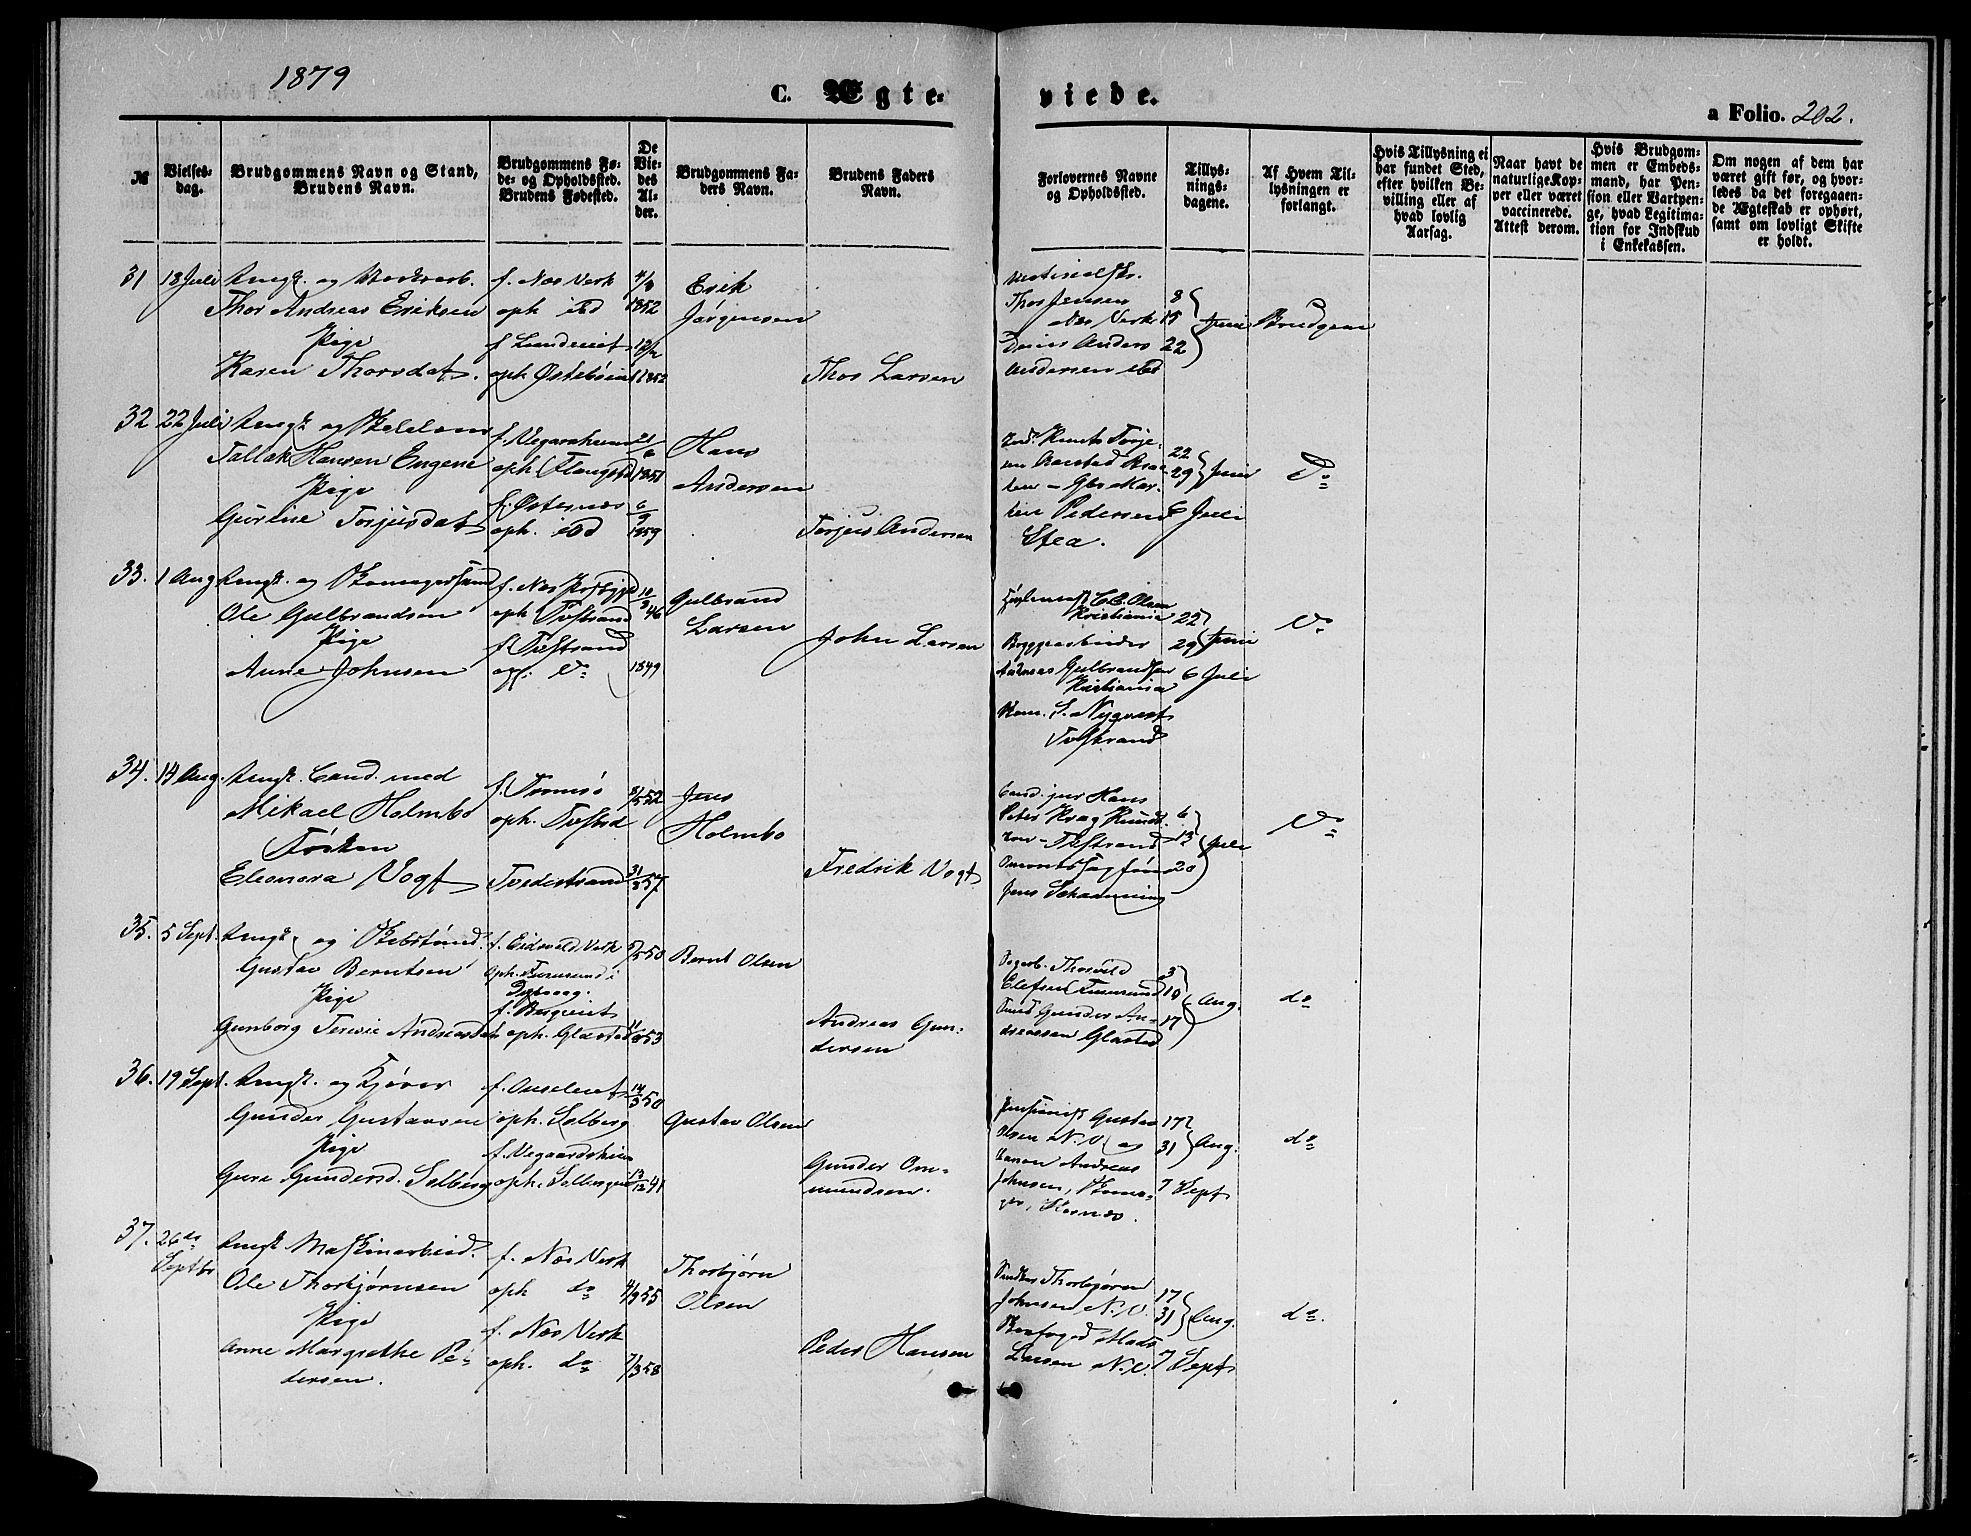 1879
C. Ægte-
viede.
a Folio. 202.
№
Vielses-
dag.
Brudgommens Navn og Stand,
Brudens Navn.
Brudgommens Fø-
de- og Opholdssted.
Brudens Fødested.
De
Vie-
des
Al-
der.
Brudgommens Fa-
ders Navn.
Brudens Faders
Navn.
Forlovernes Navne
og Opholdssted.
Tillys-
nings-
dagene.
Af Hvem Til-
lysningen er
forlangt.
Hvis Tillysning ei
har fundet Sted,
efter hvilken Be-
villing eller af
hvad lovlig
Aarsag.
Naar havt de
naturlige Kop-
per eller været
vaccinerede.
Attest derom.
Hvis Brudgom-
men er Embeds-
mand, har Pen-
sion eller Vartpen-
ge, hvad Legitima-
tion for Indskud
i Enkekassen.
Om nogen af dem har
været gift før, og hvor-
ledes da det foregaaen-
de Ægteskab er ophørt,
samt om lovligt Skifte
er holdt.
31 18 Juli Ungk. og
Thor Andreas Eriksen
Pige
Karen Thorsdat.
f. Næs Verk
oph ibd
f.
oph Østebø
4/8
1852
12/2
1852
Erik
Jørgensen
Thor Larsen
Thor Jensen
Næs Verk
Anders
Andersen ibd
8
15
22
Juni
Brudgom
32 22 Juli Ungk. og
Tallak Hansen Engene
Pige
Gurine Torjusdat
f. Vegaarsheien
oph.
f. Østernæs
oph. ibd
1851
6/9
1859
Hans
Andersen
Torjus Andersen
Knut Torje-
Pedersen
22
29 Juni
6 Juli
Do
33. 1 Aug Ungk. og Skomagersvend
Ole Gulbrandsen
Pige
Anne Johnsen
f. Næs
oph Tvstrand
f. Tvstrand
oph. Do
10/9 46
1849
Gulbrand
Larsen
John Larsen
C. C. Olsen
Kristiania
Gulbrandsen
Kristiania
S. Nyqvist
Tvstrand
22
29 Juni
6 Juli
Do
34. 14 Aug. Ungk. Cand. med
Mikael Holmbo
Frøken
Eleonora Vogt
f. Tromsø
oph. Tvstrd
Tvedestrand
8/5 52
31/3 57
Jens
Holmbo
Fredrik Vogt
Cand. jur Hans
Peter Krag
Tvstrand
Jens Schanning
6
13
20
Juli
Do
35. 5 Sept. Ungk. og
Gustav Berntsen
Pige
Gunborg Terese Andreasdat
f. Eidsvold Verk
oph. Furusund i
Dybvaag.
f. Bergeiet
oph. Glastad
5/5 50
53
Bernt Olsen
Andreas Gun-
dersen
Thorvald
Olefsen Furusund
Gunder An-
dreassen Glastad
3
10
17
Aug.
do
36. 19 Sept. Ungk. og Kjører
Gunder Gustavsen
Pige
Gure Gundersd. Solberg
f.
oph. Solberg
f. Vegaardsheien
oph. Solberg
14/3 50
13/12 41
Gustav Olsen
Gunder Om-
mundsen.
Gustav
Olsen N. V. og
Andreas
Johnsen,
17
31 Aug.
7 Sept
do
37. 26de
Septbr
Ungk Maskinarbeid.
Ole Thorbjørnsen
Pige
Anne Margrethe Pe-
dersen.
f. Næs Verk
oph do
f. Næs Verk
oph. do
4/9 55
7/3 58
Thorbjørn
Olsen
Peder Hansen
Thorbjørn
Johnsen N. V.
Skovfoged Mads
Larsen N. V.
17
31 Aug.
7 Sept
do.